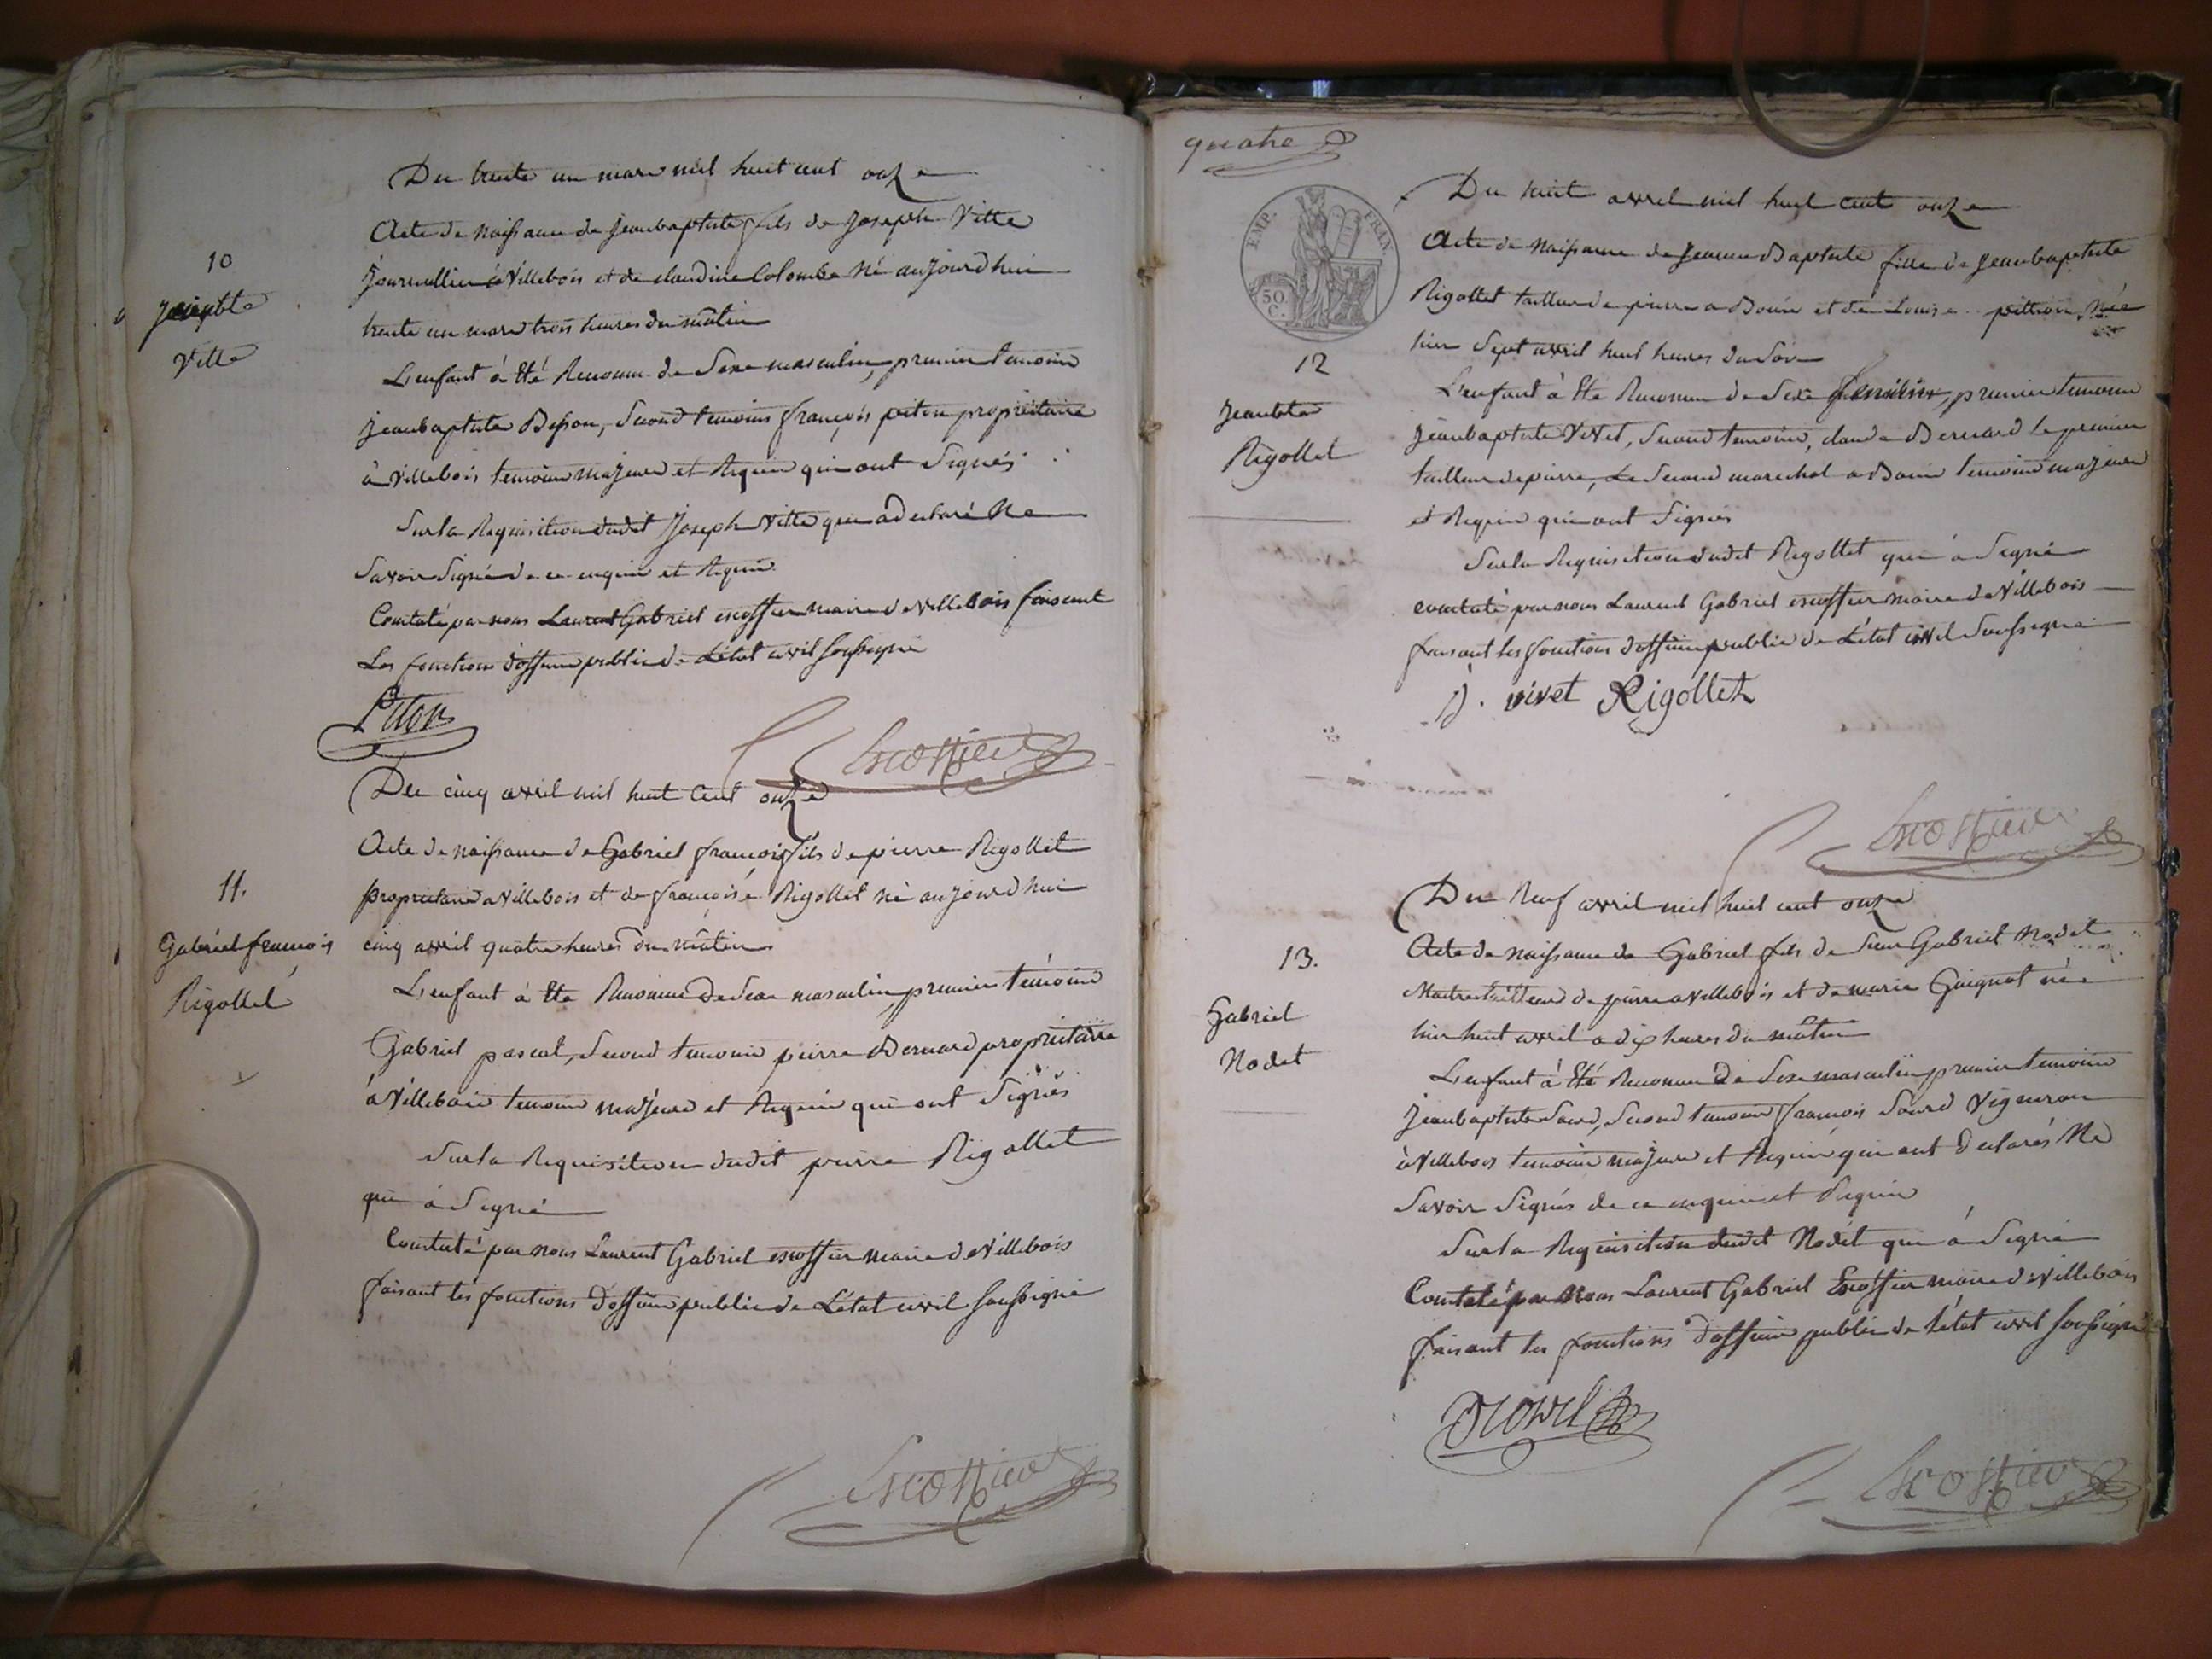 Du trente un mars mil huit cent onze
10
Jeanbte
Ville
Acte de naissance de Jeanbaptiste fils de Joseph Ville
Journallier à Villebois et de claudine Colombe né aujourd'hui
trente un mars trois heures du matin
L'enfant à été Reconnu de Sexe masculin, premier temoin
jeanbaptiste Besson, Second temoins françois piton propriétaire
à Villebois temoins majeurs et Requis qui ont Signés
Sur la Requisition dudit Joseph Ville qui a declaré Ne
Savoir Signé de ce enquis et Requis
Constaté par nous Laurent Gabriel escoffier maire de Villebois faisant
Les fonctions d'officier public de L'état civil soussigné
Piton
Escoffier
Du cinq avril mil huit cent onze
11.
Gabriel françois
Rigollet
Acte de naissance de Gabriel françois fils de pierre Rigollet
propriétaire a Villebois et de françoise Rigollet né aujourd'hui
cinq avril quatre heures du matin
L'enfant à été Reconnu de Sexe masculin, premier temoin
Gabriel pascal, Second temoin pierre Bernard propriétaire
à Villebois temoins majeurs et Requis qui ont Signés
Sur la Requisition dudit pierre Rigollet
qui à Signé
Constaté par nous Laurent Gabriel escoffier maire de Villebois
faisant les fonctions d'officier public de L'état civil soussigné
Escoffier
quatre
EMP. FRAN.
50 C.
Du huit avril mil huit cent onze
12
Jeanbte
Rigollet
Acte de Naissance de Jeanne Baptiste fille de Jeanbaptiste
Rigollet tailleur de pierre a Bouis et de Louise pittion née
hier Sept avril huit heures du Soir
L'enfant à été Reconnu de Sexe feminin, premier temoin
Jeanbaptiste Vivet, Second temoins, claude Bernard le premier
tailleur de pierre, Le Second marechal a Bouis temoins majeurs
et Requis qui ont Signés
Sur la Requisition dudit Rigollet qui à Signé
constaté par nous Laurent Gabriel escoffier maire de Villebois
faisant les fonctions d'officier public de L'état civil Soussigné
J. vivet Rigollet
Escoffier
Du Neuf avril mil huit cent onze
13.
Gabriel
Nodet
Acte de naissance de Gabriel fils de Sieur Gabriel Nodet
Maitre tailleur de pierre a Villebois et de marie Guignot née
hier huit avril a dix heures du matin
L'enfant à été Reconnu de Sexe masculin premier temoin
Jeanbaptiste Sourd, Second temoins françois Sourd Vigneron
à Villebois temoins majeurs et Requis qui ont declarés Ne
Savoir Signés de ce enquis et Requis
Sur la Requisition dudit Nodet qui à Signé
Constaté par Nous Laurent Gabriel Escoffier maire de Villebois
faisant les fonctions d'officier public de l'état civil soussigné
Escoffier